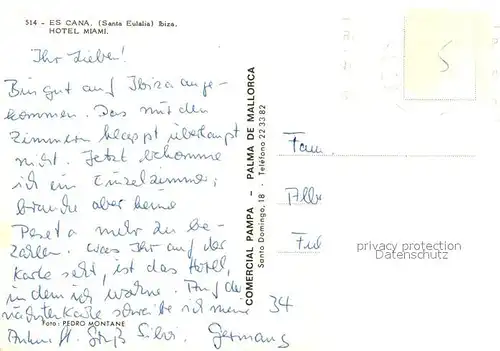 514 - ES CANA. (Santa Eulalia) Ibiza.
HOTEL MIAMI.
Ihr Lieben!
Bin gut auf Ibiza ange-
kommen. Das mit den
Zimmern klappt überhaupt
nicht. Jetzt bekomme
ich ein Einzelzimmer,
brauche aber keine
Peseta mehr zu be-
zahlen. Was Ihr auf der
Karte seht, ist das Hotel,
in dem ich wohne. Auf der
nächsten Karte schreibe ich meine
Ankunft. Gruß Silvi.
Foto: PEDRO MONTANE
COMERCIAL PAMPA - PALMA DE MALLORCA
Santo Domingo, 18 - Teléfono 22 33 82
5
Fam.
Albe
34
Germany
privacy protection
Datenschutz